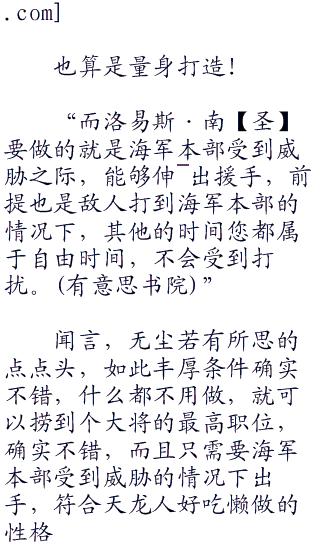 .com]
也算是量身打造！
“而洛易斯·南【圣】
要做的就是海军本部受到威
胁之际，能够伸¯出援手，前
提也是敌人打到海军本部的
情况下，其他的时间您都属
于自由时间，不会受到打
扰。(有意思书院)”
闻言，无尘若有所思的
点点头，如此丰厚条件确实
不错，什么都不用做，就可
以捞到个大将的最高职位，
确实不错，而且只需要海军
本部受到威胁的情况下出
手，符合天龙人好吃懒做的
性格